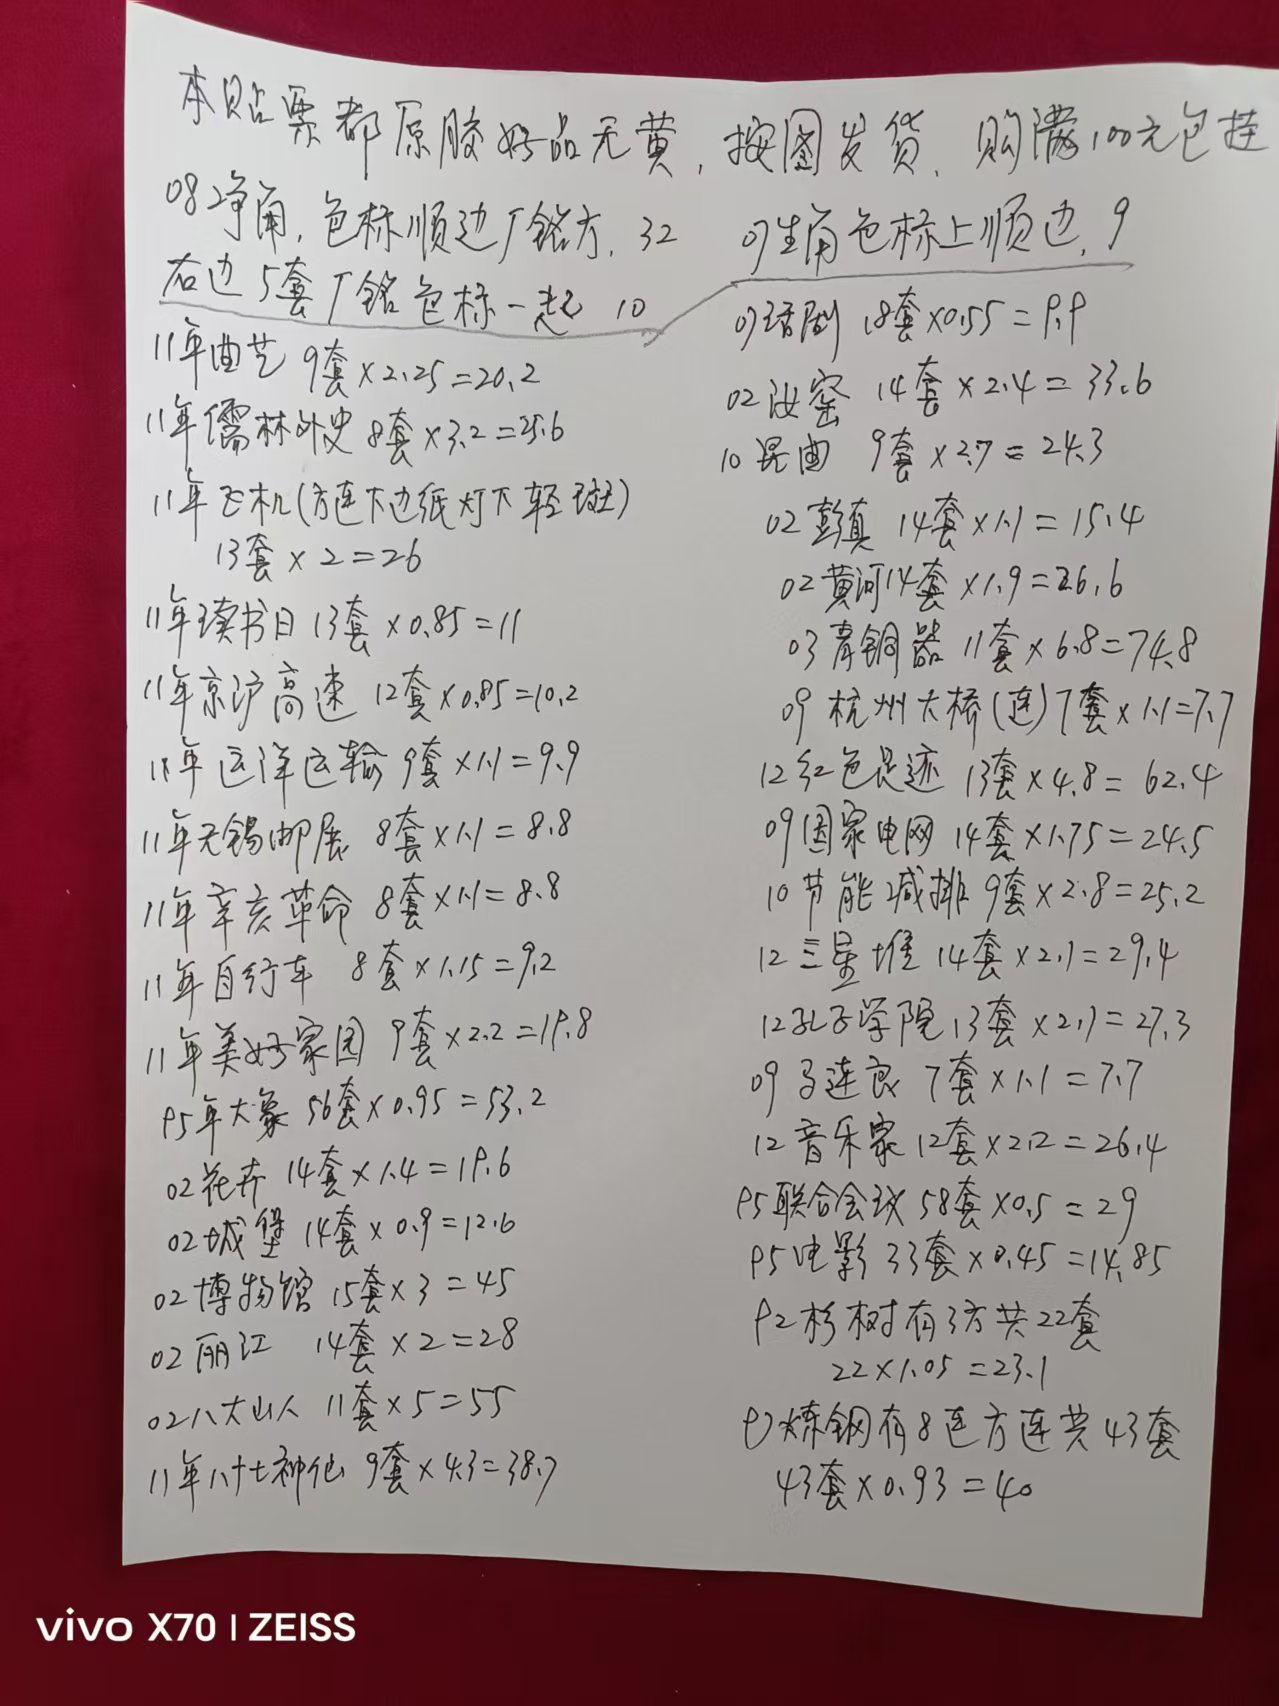 本贴票都原胶好品无黄,按图发货,购满100元包挂
08净角,色标顺边厂铭方,32
右边5套厂铭色标一起 10
11年曲艺 9套×2.25=20.2
11年儒林外史 8套×3.2=25.6
11年飞机(方连下边纸灯下轻斑)
13套×2=26
11年读书日 13套×0.85=11
11年京沪高速 12套×0.85=10.2
11年远洋运输 9套×1.1=9.9
11年无锡邮展 8套×1.1=8.8
11年辛亥革命 8套×1.1=8.8
11年自行车 8套×1.15=9.2
11年美好家园 9套×2.2=19.8
95年大象 56套×0.95=53.2
02花卉 14套×1.4=19.6
02城堡 14套×0.9=12.6
02博物馆 15套×3=45
02丽江 14套×2=28
02八大山人 11套×5=55
11年八十七神仙 9套×4.3=38.7
07生角色标上顺边,9
07话剧 18套×0.55=9.9
02汝窑 14套×2.4=33.6
10昆曲 9套×2.7=24.3
02彭真 14套×1.1=15.4
02黄河14套×1.9=26.6
03青铜器 11套×6.8=74.8
09杭州大桥(连)7套×1.1=7.7
12红色足迹 13套×4.8=62.4
09国家电网 14套×1.75=24.5
10节能减排 9套×2.8=25.2
12三星堆 14套×2.1=29.4
12孔子学院 13套×2.1=27.3
09马连良 7套×1.1=7.7
12音乐家 12套×2.2=26.4
95联合会议 58套×0.5=29
95电影 33套×0.45=14.85
92杉树有3方共22套
22×1.05=23.1
炼钢有8连方连共43套
43套×0.93=40
vivo X70 | ZEISS